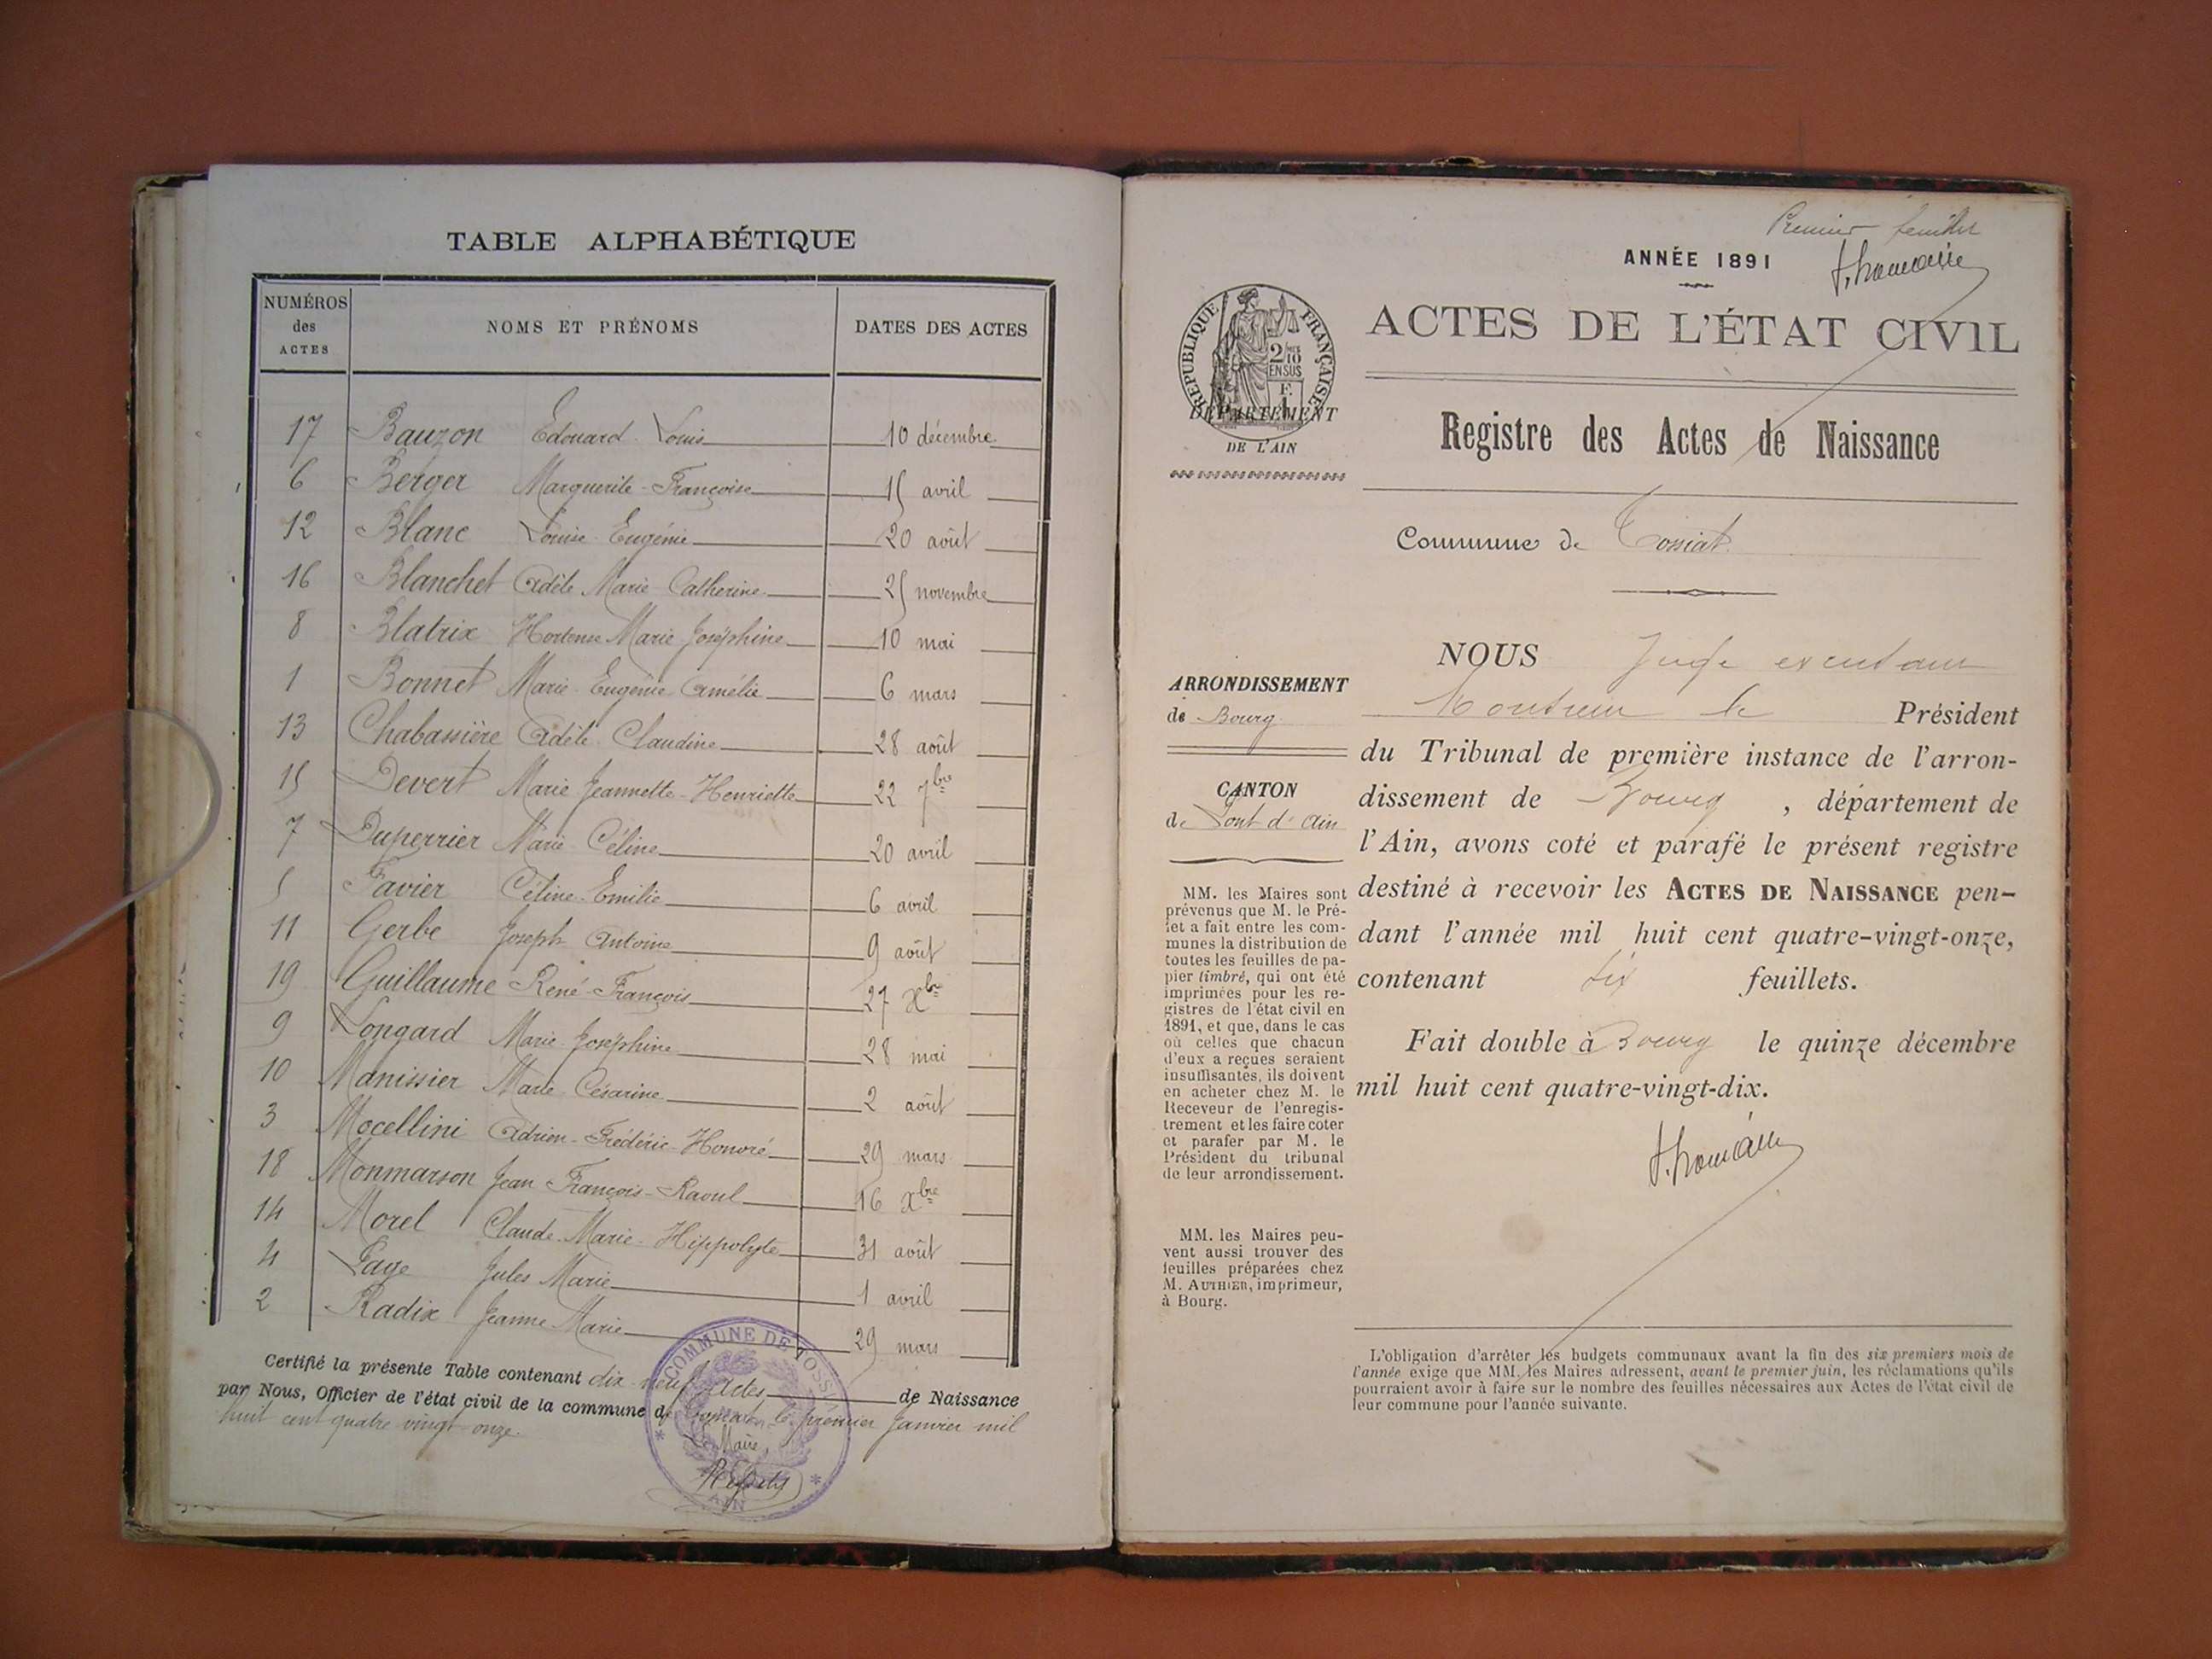 TABLE ALPHABÉTIQUE
NUMÉROS des ACTES NOMS ET PRÉNOMS DATES DES ACTES
17 Bauzon Edouard Louis 10 décembre
6 Berger Marguerite-Françoise 15 avril
12 Blanc Louise Eugénie 20 août
16 Blanchet Adèle Marie Catherine 25 novembre
8 Blatrix Hortense Marie Joséphine 10 mai
1 Bonnet Marie Eugénie Amélie 6 mars
13 Chabassière Adèle Claudine 28 août
15 Devert Marie Jeannette-Henriette 22 7bre
7 Duperrier Marie Céline 20 avril
5 Favier Céline-Emilie 6 avril
11 Gerbe Joseph Antoine 9 août
19 Guillaume René-François 27 Xbre
9 Longard Marie Joséphine 28 mai
10 Manissier Marie Césarine 2 août
3 Mocellini Adrien-Frédéric-Honoré 29 mars
18 Monmarson Jean-François-Raoul 16 Xbre
14 Morel Claude-Marie-Hippolyte 31 août
4 Page Jules Marie 1 avril
2 Radix Jeanne Marie 29 mars
Certifié la présente Table contenant dix neuf Actes de Naissance
par Nous, Officier de l'état civil de la commune de Tossiat le premier Janvier mil
huit cent quatre vingt onze.
Le Maire,
COMMUNE DE TOSSIAT
AIN
Premier feuillet
ANNÉE 1891
RÉPUBLIQUE FRANÇAISE
2/10 EN SUS
ACTES DE L'ÉTAT CIVIL
DÉPARTEMENT
DE L'AIN
Registre des Actes de Naissance
Commune de Tossiat
ARRONDISSEMENT
de Bourg
CANTON
de Pont d'Ain
MM. les Maires sont
prévenus que M. le Pré-
fet a fait entre les com-
munes la distribution de
toutes les feuilles de pa-
pier timbré, qui ont été
imprimées pour les re-
gistres de l'état civil en
1891, et que, dans le cas
où celles que chacun
d'eux a reçues seraient
insuffisantes, ils doivent
en acheter chez M. le
Receveur de l'enregis-
trement et les faire coter
et parafer par M. le
Président du tribunal
de leur arrondissement.
MM. les Maires peu-
vent aussi trouver des
feuilles préparées chez
M. AUTHIER, imprimeur,
à Bourg.
NOUS Juge
Monsieur le Président
du Tribunal de première instance de l'arron-
dissement de Bourg, département de
l'Ain, avons coté et parafé le présent registre
destiné à recevoir les ACTES DE NAISSANCE pen-
dant l'année mil huit cent quatre-vingt-onze,
contenant six feuillets.
Fait double à Bourg le quinze décembre
mil huit cent quatre-vingt-dix.
L'obligation d'arrêter les budgets communaux avant la fin des six premiers mois de
l'année exige que MM. les Maires adressent, avant le premier juin, les réclamations qu'ils
pourraient avoir à faire sur le nombre des feuilles nécessaires aux Actes de l'état civil de
leur commune pour l'année suivante.